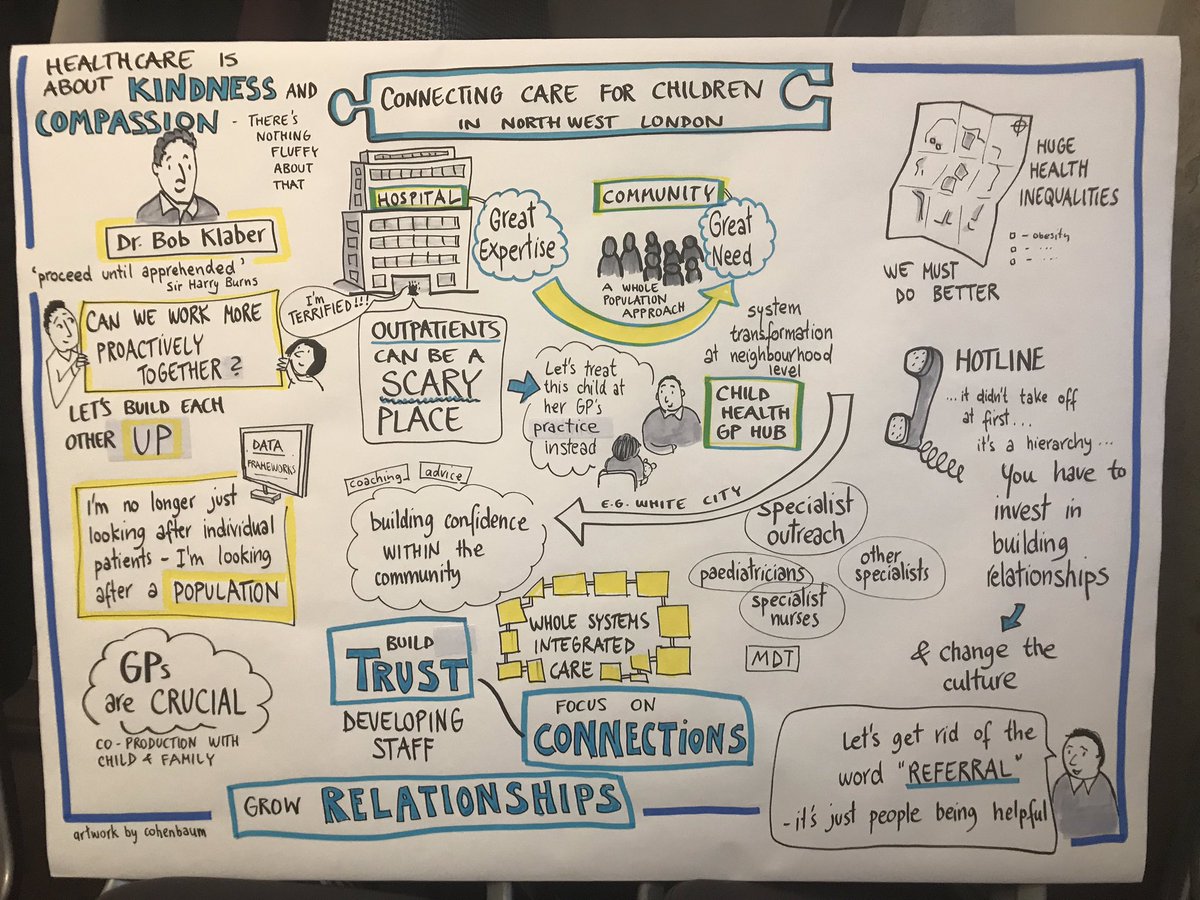 HEALTHCARE IS
ABOUT KINDNESS AND
COMPASSION
- THERE'S
NOTHING
FLUFFY
ABOUT
THAT
Dr. Bob Klaber
'proceed until apprehended'
Sir Harry Burns
CAN WE WORK MORE
PROACTIVELY
TOGETHER?
LET'S BUILD EACH
OTHER UP
DATA
FRAMEWORKS
I'm no longer just
looking after individual
patients - I'm looking
after a POPULATION
GPs
are CRUCIAL
CO-PRODUCTION WITH
CHILD & FAMILY
artwork by cohenbaum
CONNECTING CARE FOR CHILDREN
IN NORTH WEST LONDON
HOSPITAL
Great
Expertise
COMMUNITY
Great
Need
A WHOLE
POPULATION
APPROACH
I'm
TERRIFIED!!!
OUTPATIENTS
CAN BE A
SCARY
PLACE
Let's treat
this child at
her GP's
practice
instead
system
transformation
at neighbourhood
level
CHILD
HEALTH
GP HUB
E.G. WHITE CITY
coaching
advice
building confidence
WITHIN the
community
specialist
outreach
paediatricians
other
specialists
specialist
nurses
MDT
WHOLE SYSTEMS
INTEGRATED
CARE
BUILD
TRUST
DEVELOPING
STAFF
FOCUS ON
CONNECTIONS
GROW RELATIONSHIPS
HUGE
HEALTH
INEQUALITIES
- obesity
- ...
- ...
WE MUST
DO BETTER
HOTLINE
...it didn't take off
at first...
it's a hierarchy...
You have to
invest in
building
relationships
& change the
culture
Let's get rid of the
word "REFERRAL"
- it's just people being helpful